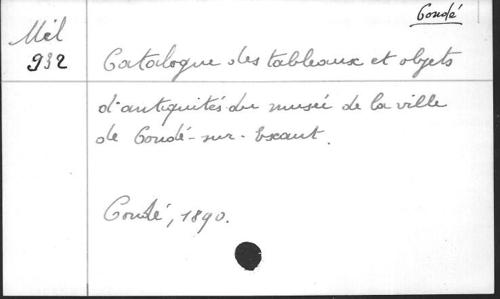 Condé
Mél
932
Catalogue des tableaux et objets
d'antiquités du musée de la ville
de Condé-sur-Escaut.
Condé, 1890.